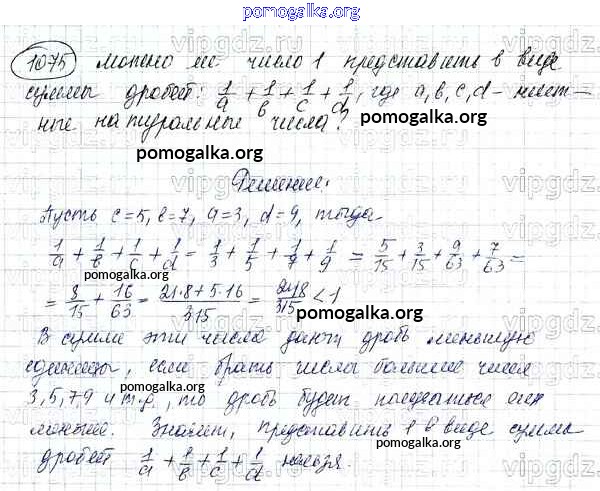 pomogalka.org
1075 Можно ли число 1 представить в виде
суммы дробей: 1/a + 1/b + 1/c + 1/d, где a, b, c, d - нечет-
ные натуральные числа?
pomogalka.org
Решение.
Пусть c=5, b=7, a=3, d=9, тогда
1/a + 1/b + 1/c + 1/d = 1/3 + 1/5 + 1/7 + 1/9 = 5/15 + 3/15 + 9/63 + 7/63 =
pomogalka.org
= 8/15 + 16/63 = 21·8+5·16/315 = 248/315 < 1
pomogalka.org
В сумме эти числа дают дробь меньшую
единицы, если брать числа большие чисел
pomogalka.org
3, 5, 7, 9 и т.д., то дробь будет получаться
меньше. Значит, представить 1 в виде суммы
дробей 1/a + 1/b + 1/c + 1/d нельзя.
pomogalka.org